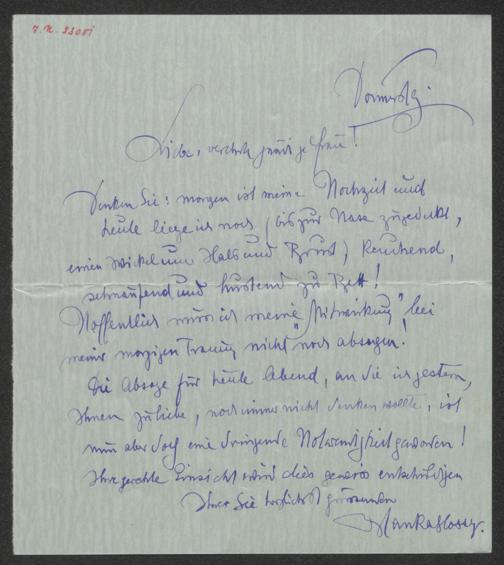 Donnerstg.
Liebe, verehrte gnädige Frau!
Denken Sie: morgen ist meine Hochzeit und
heute liege ich noch (bis zur Nase zugedeckt,
einen Wickel um Hals und Brust) keuchend,
schnaufend und hustend zu Bett!
Hoffentlich muss ich meine "Mitwirkung" bei
meiner morgigen Trauung nicht noch absagen!
Die Absage für heute Abend, an die ich gestern,
Ihnen zuliebe, noch immer nicht denken wollte, ist
nun aber doch eine dringende Notwendigkeit geworden!
Ihre gerechte Einsicht wird dies generös entschuldigen
Ihrer Sie herzlichst grüssenden